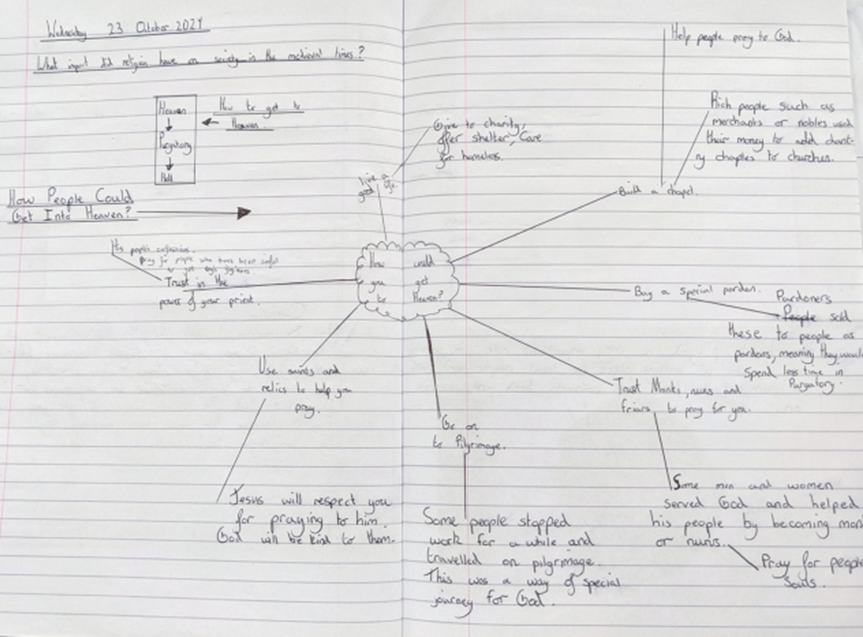 Wednesday 23 October 2024
What impact did religion have on society in the medieval times?
Heaven
Purgatory
Hell
How to get to
Heaven.
How People Could
Get Into Heaven?
How could
you get
to Heaven?
live a
good life
Give to charity,
offer shelter, Care
for homeless.
Build a chapel.
Help people prey to God.
Rich people such as
merchants or nobles used
their money to add chant-
ry chaples to churches.
Buy a special pardon.
Pardoners
People sold
these to people as
pardons, meaning they would
spend less time in
Purgatory.
Trust Monks, nuns and
friars to pray for you.
Some men and women
served God and helped
his people by becoming
or nuns.
Pray for people
Souls.
Go on
to Pilgrimage.
Some people stopped
work for a while and
travelled on pilgrimage.
This was a way of special
journey for God.
Use saints and
relics to help you
pray.
Jesus will respect you
for praying to him.
God will be kind to them.
Trust in the
power of your priest.
people's
pray for people who have been